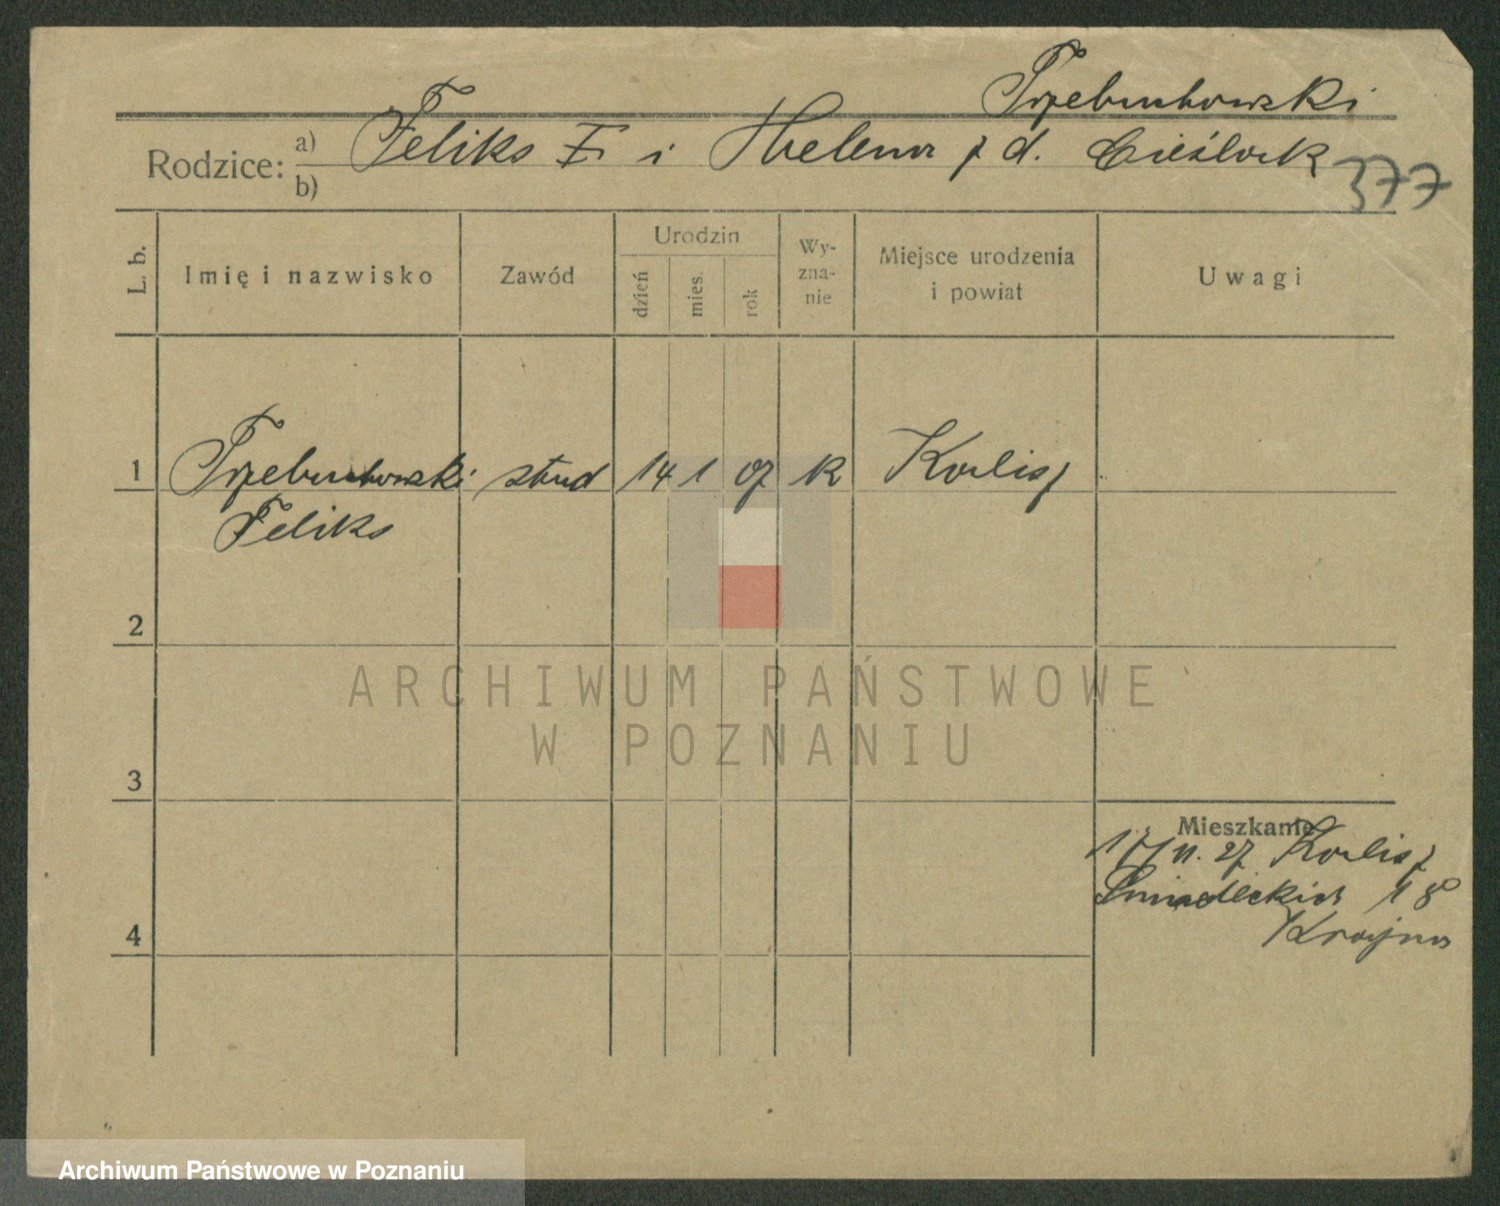 Trzebuchowski
Rodzice: a) Feliks i Helena z d. Cieślak
b)
377
L. b.
Imię i nazwisko
Zawód
Urodzin
dzień
mies.
rok
Wy-
zna-
nie
Miejsce urodzenia
i powiat
Uwagi
1 Trzebuchowski stud 14 1 07 k Kalisz
Feliks
2
3
4
Mieszkanie
11. 27 Kalisz
Śniadeckich 18
Krajna
ARCHIWUM PAŃSTWOWE
W POZNANIU
Archiwum Państwowe w Poznaniu